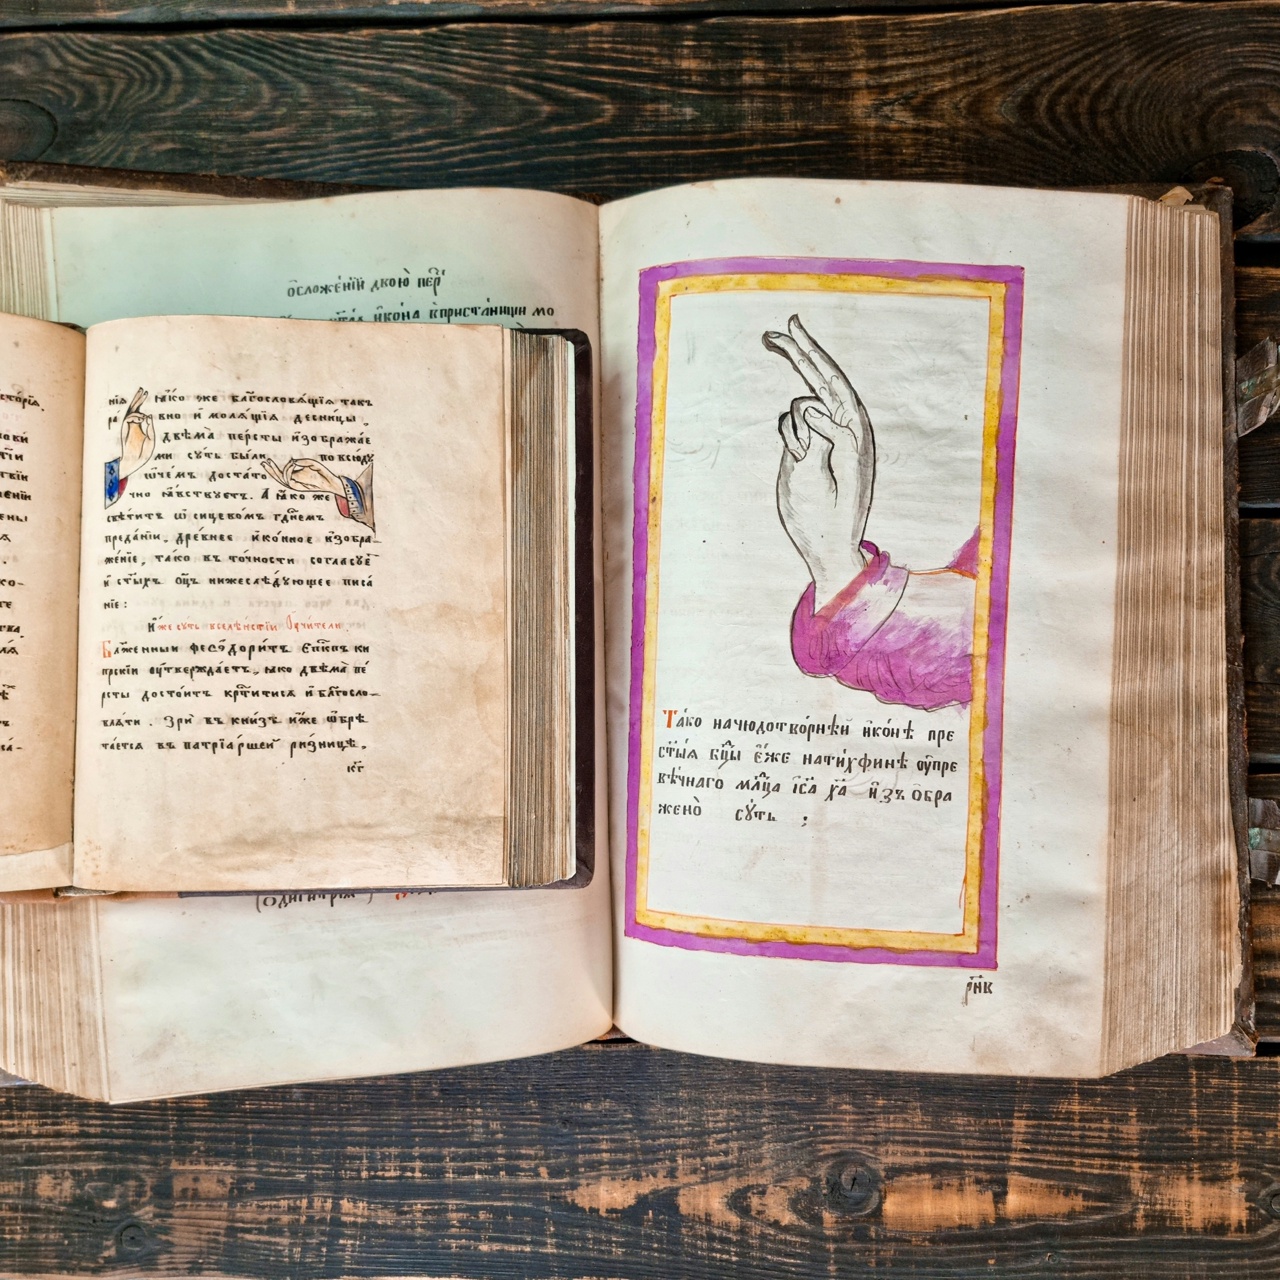 ѡсложе́нїй дкою̀ пер҇
и҆ко́на в̾приста́нищи мо
(Ѻдиги́трїѧ)
сто́рїѧ.
нїѧ ꙗ҆́ко же бл҃гословѧ́щїѧ такъ
ра́ вно и҆ молѧ́щїѧ десни́цы.
двѣма̀ пе́рсты и҆зобража́е
ми су́ть бы́ли повсю́дꙋ
ѡ҆че́мъ доста́то
чно ꙗ҆́вствуетъ. А ꙗ҆́ко же
свѣ́титъ ѡ҆ сицево́мъ гдⷭ҇немъ
преда́нїи, дре́внее и҆ко́нное и҆зобра
же́нїе, та́ко въ то́чности согласуе҆
и҆ ст҃ы́хъ ѻ҆ц҃ъ нижеслѣ́дующее писа́
нїе:
И҆́же су́ть вселе́нстїи Оу҆чи́тели.
Блаже́нный Феѻдори́тъ Е҆пⷭ҇кпъ ки
прскїи оу҆твержда́етъ, ꙗ҆́ко двѣма̀ пе́
рсты досто́итъ крⷭ҇ти́тисѧ и҆ бл҃госло-
влѧ́ти. Зрѝ въ кни́зѣ и҆́же ѡ҆брѣ
та́етсѧ въ патрїа́ршей ри́зницѣ.
к҃г
Та́ко начюдотво́рнѣй и҆ко́нѣ пре
ст҃ы́ѧ бц҃ы є҆́же нати́хфинѣ оу҆пре
вѣ́чнаго млⷣнца і҆с҃а х҃а и҆з̾ѡбра
жено̀ су́ть ;
р҃нв